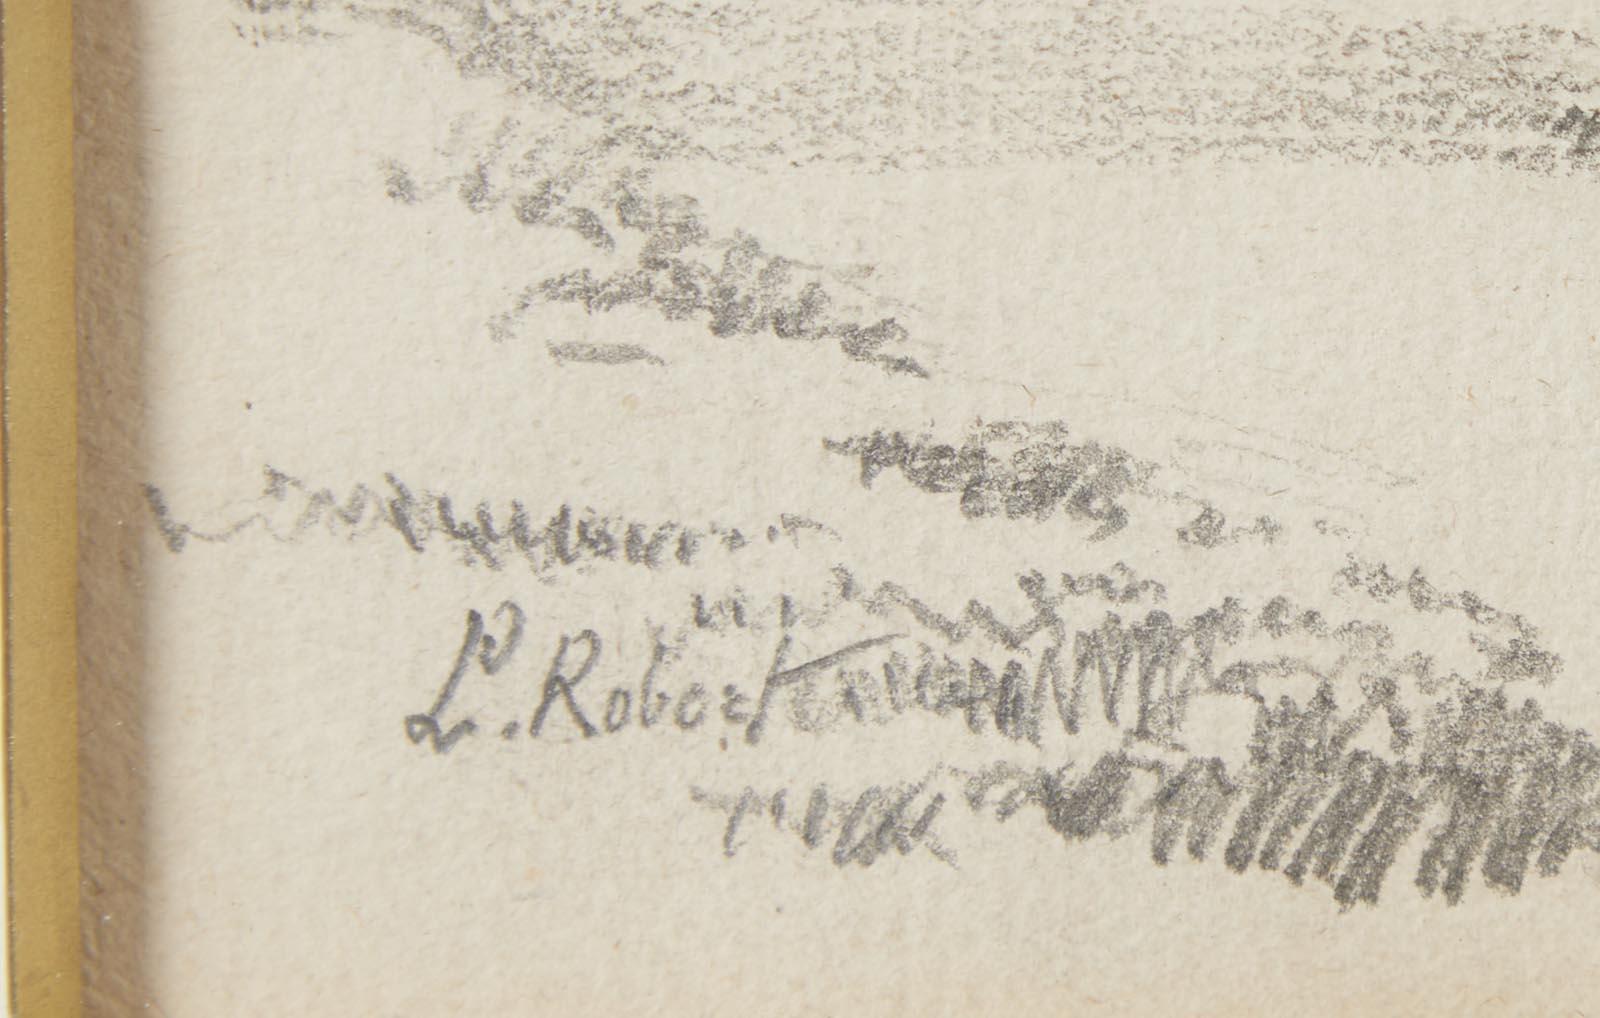 L. Robert